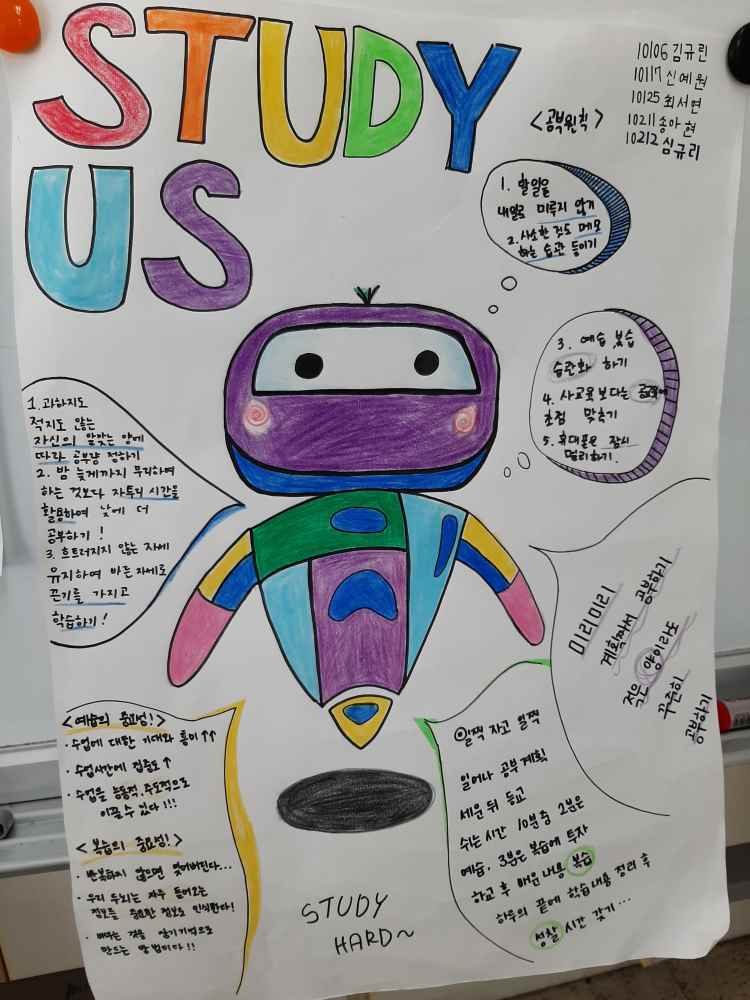 STUDY
US
10106 김규린
10117 신예원
10125 최서연
10211 송아현
10212 심규리
<공부원칙>
1. 할일을
내일로 미루지 않기
2. 사소한 것도 메모
하는 습관 들이기
3. 예습 복습
습관화 하기
4. 사교육보다는 공교육에
초점 맞추기
5. 휴대폰은 잠시
멀리하기.
1. 과하지도
적지도 않는
자신의 알맞는 양에
따라 공부량 정하기
2. 밤 늦게까지 무리하며
하는 것보다 자투리 시간을
활용하여 낮에 더
공부하기!
3. 흐트러지지 않는 자세
유지하며 바른자세로
끈기를 가지고
학습하기!
미리미리
계획짜서 공부하기
적은 양이라도
꾸준히
공부하기
<예습의 중요성!>
· 수업에 대한 기대와 흥미↑↑
· 수업시간에 집중도↑
· 수업을 능동적, 주도적으로
이끌 수 있다!!!
<복습의 중요성!>
· 반복하지 않으면 잊어버린다...
· 우리 두뇌는 자주 들어오는
정보를 중요한 정보로 인식한다!
· 배우는 것을 장기기억으로
만드는 방법이다!!
일찍 자고 일찍
일어나 공부 계획
세운 뒤 등교
쉬는시간 10분중 2분은
예습, 3분은 복습에 투자
하교 후 배운내용 복습
하루의 끝에 학습내용 정리 후
성찰 시간 갖기...
STUDY
HARD~